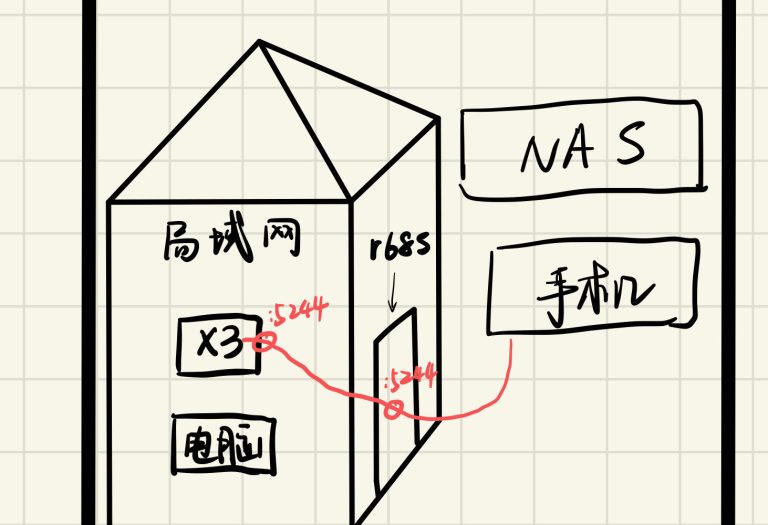 NAS
局域网
r68s
手机
:5244
X3
:5244
电脑